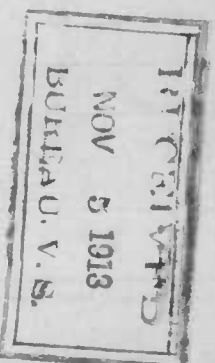 RECEIVED
NOV 5 1913
BUREAU. V. S.